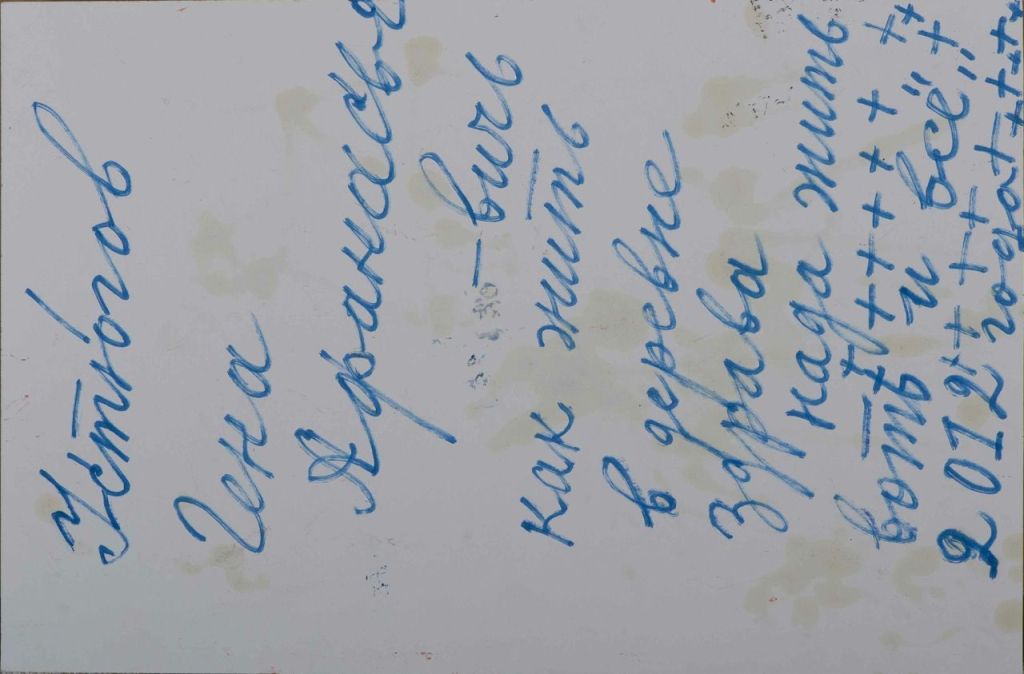 Устюгов
Гена
Афанасьв-е
-вичь
как жить
в деревне
здрава
нада жить
вотъ и всё"
2012 года